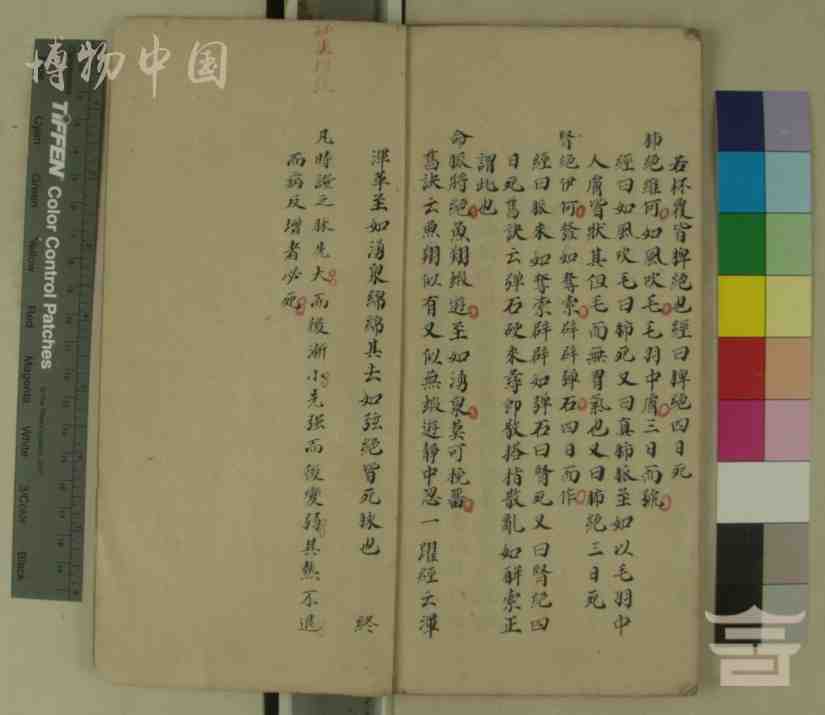 博物中国
若杯覆皆脾絶也經曰脾絶四日死
肺絶維何如風吹毛毛羽中膚三日而號
經曰如風吹毛曰肺死又曰真肺脉至如以毛羽中
人膚皆狀其但毛而無胃氣也又曰肺絶三日死
腎絶伊何發如奪索辟辟彈石四日而作
經曰脉來如奪索辟辟如彈石曰腎死又曰腎絶四
日死舊訣云彈石硬來尋即散搭指散亂如解索正
謂此也
命脉將絶魚翔蝦遊至如湧泉莫可挽留
舊訣云魚翔似有又似無蝦遊靜中忽一躍經云渾
渾革至如湧泉綿綿其去如弦絶皆死脉也 終
凡時證之脉先大而後漸小先强而後變弱其熱不退
而病反增者必死
TIFFEN Color Control Patches
Cyan
Green
Yellow
Red
Magenta
White
3/Color
Black